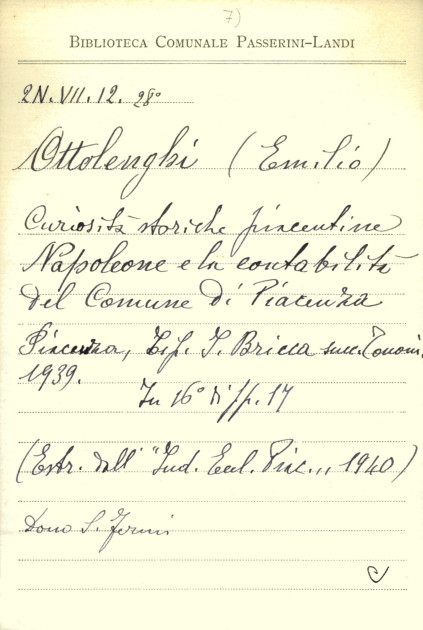 7)
BIBLIOTECA COMUNALE PASSERINI-LANDI
2N.VII.12. 28°
Ottolenghi (Emilio)
Curiosità storiche piacentine
Napoleone e la contabilità
del Comune di Piacenza
Piacenza, Tip. I. Bricca succ. Tononi.
1939.
In 16° di pp. 17
(Estr. dall' "Ind. Eccl. Piac.,, 1940)
Dono S. Fermi